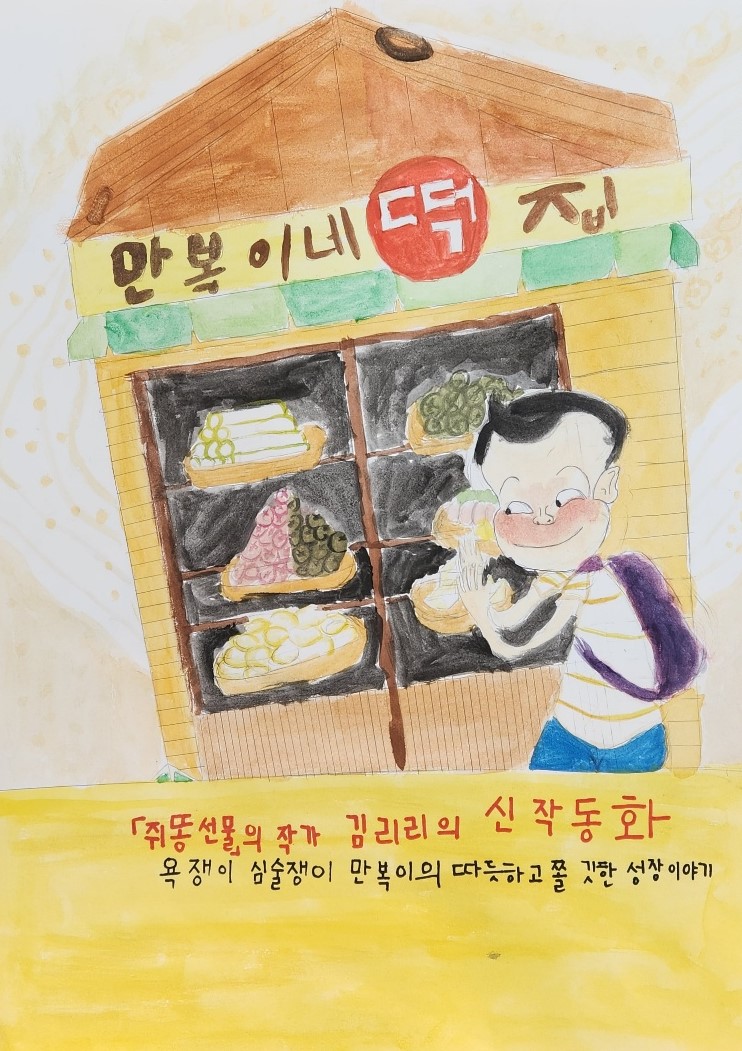 만복이네 떡 집
「쥐똥선물」의 작가 김리리의 신작동화
욕쟁이 심술쟁이 만복이의 따듯하고 쫄깃한 성장이야기